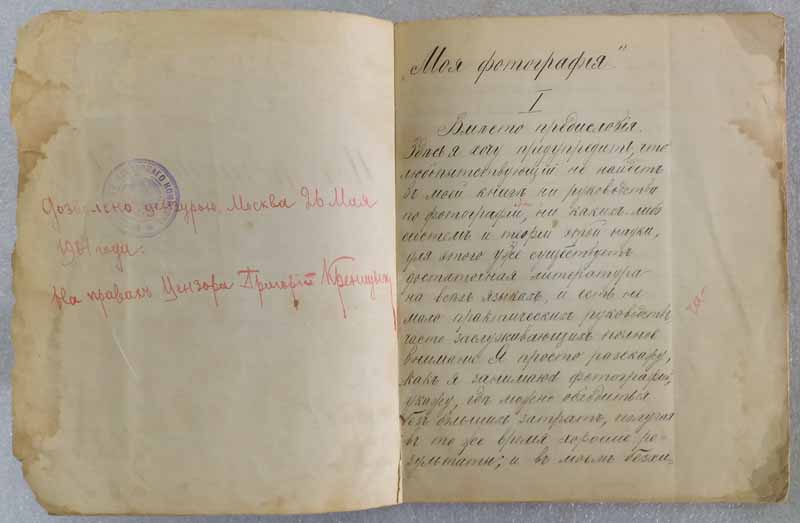 Дозволено цензурою, Москва 26 Мая
190 года:
на правахъ Цензора Григорій
„Моя фотографія"
I
Вмѣсто предисловія.
Здѣсь я хочу предупредить, что
любопытствующій не найдетъ
въ моей книгѣ ни руководства
по фотографіи, ни какихъ-либо
системъ и теорій этой науки,
для этого уже существуетъ
достаточная литература
на всѣхъ языкахъ, и есть не
мало практическихъ руководствъ,
часто заслуживающихъ полное
вниманіе. Я просто разскажу,
какъ я занимаюсь фотографіей,
укажу, гдѣ можно обходиться
безъ большихъ затратъ, получая
въ то же время хорошіе ре-
зультаты; и въ моемъ безхи-